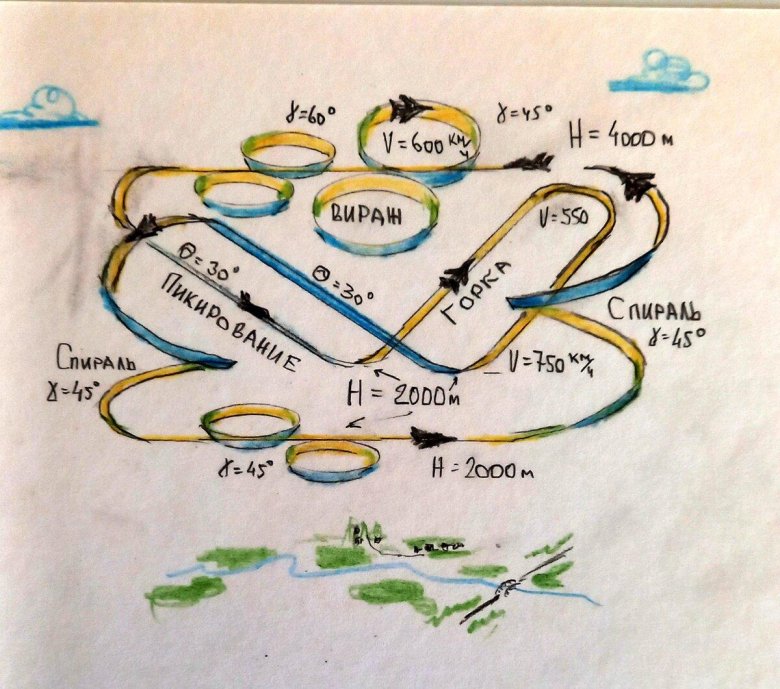 γ=60°
γ=45°
V=600 КМ/Ч
H=4000м
ВИРАЖ
V=550
Θ=30°
Θ=30°
ПИКИРОВАНИЕ
ГОРКА
СПИРАЛЬ
γ=45°
СПИРАЛЬ
γ=45°
V=750 КМ/Ч
H=2000м
γ=45°
H=2000м